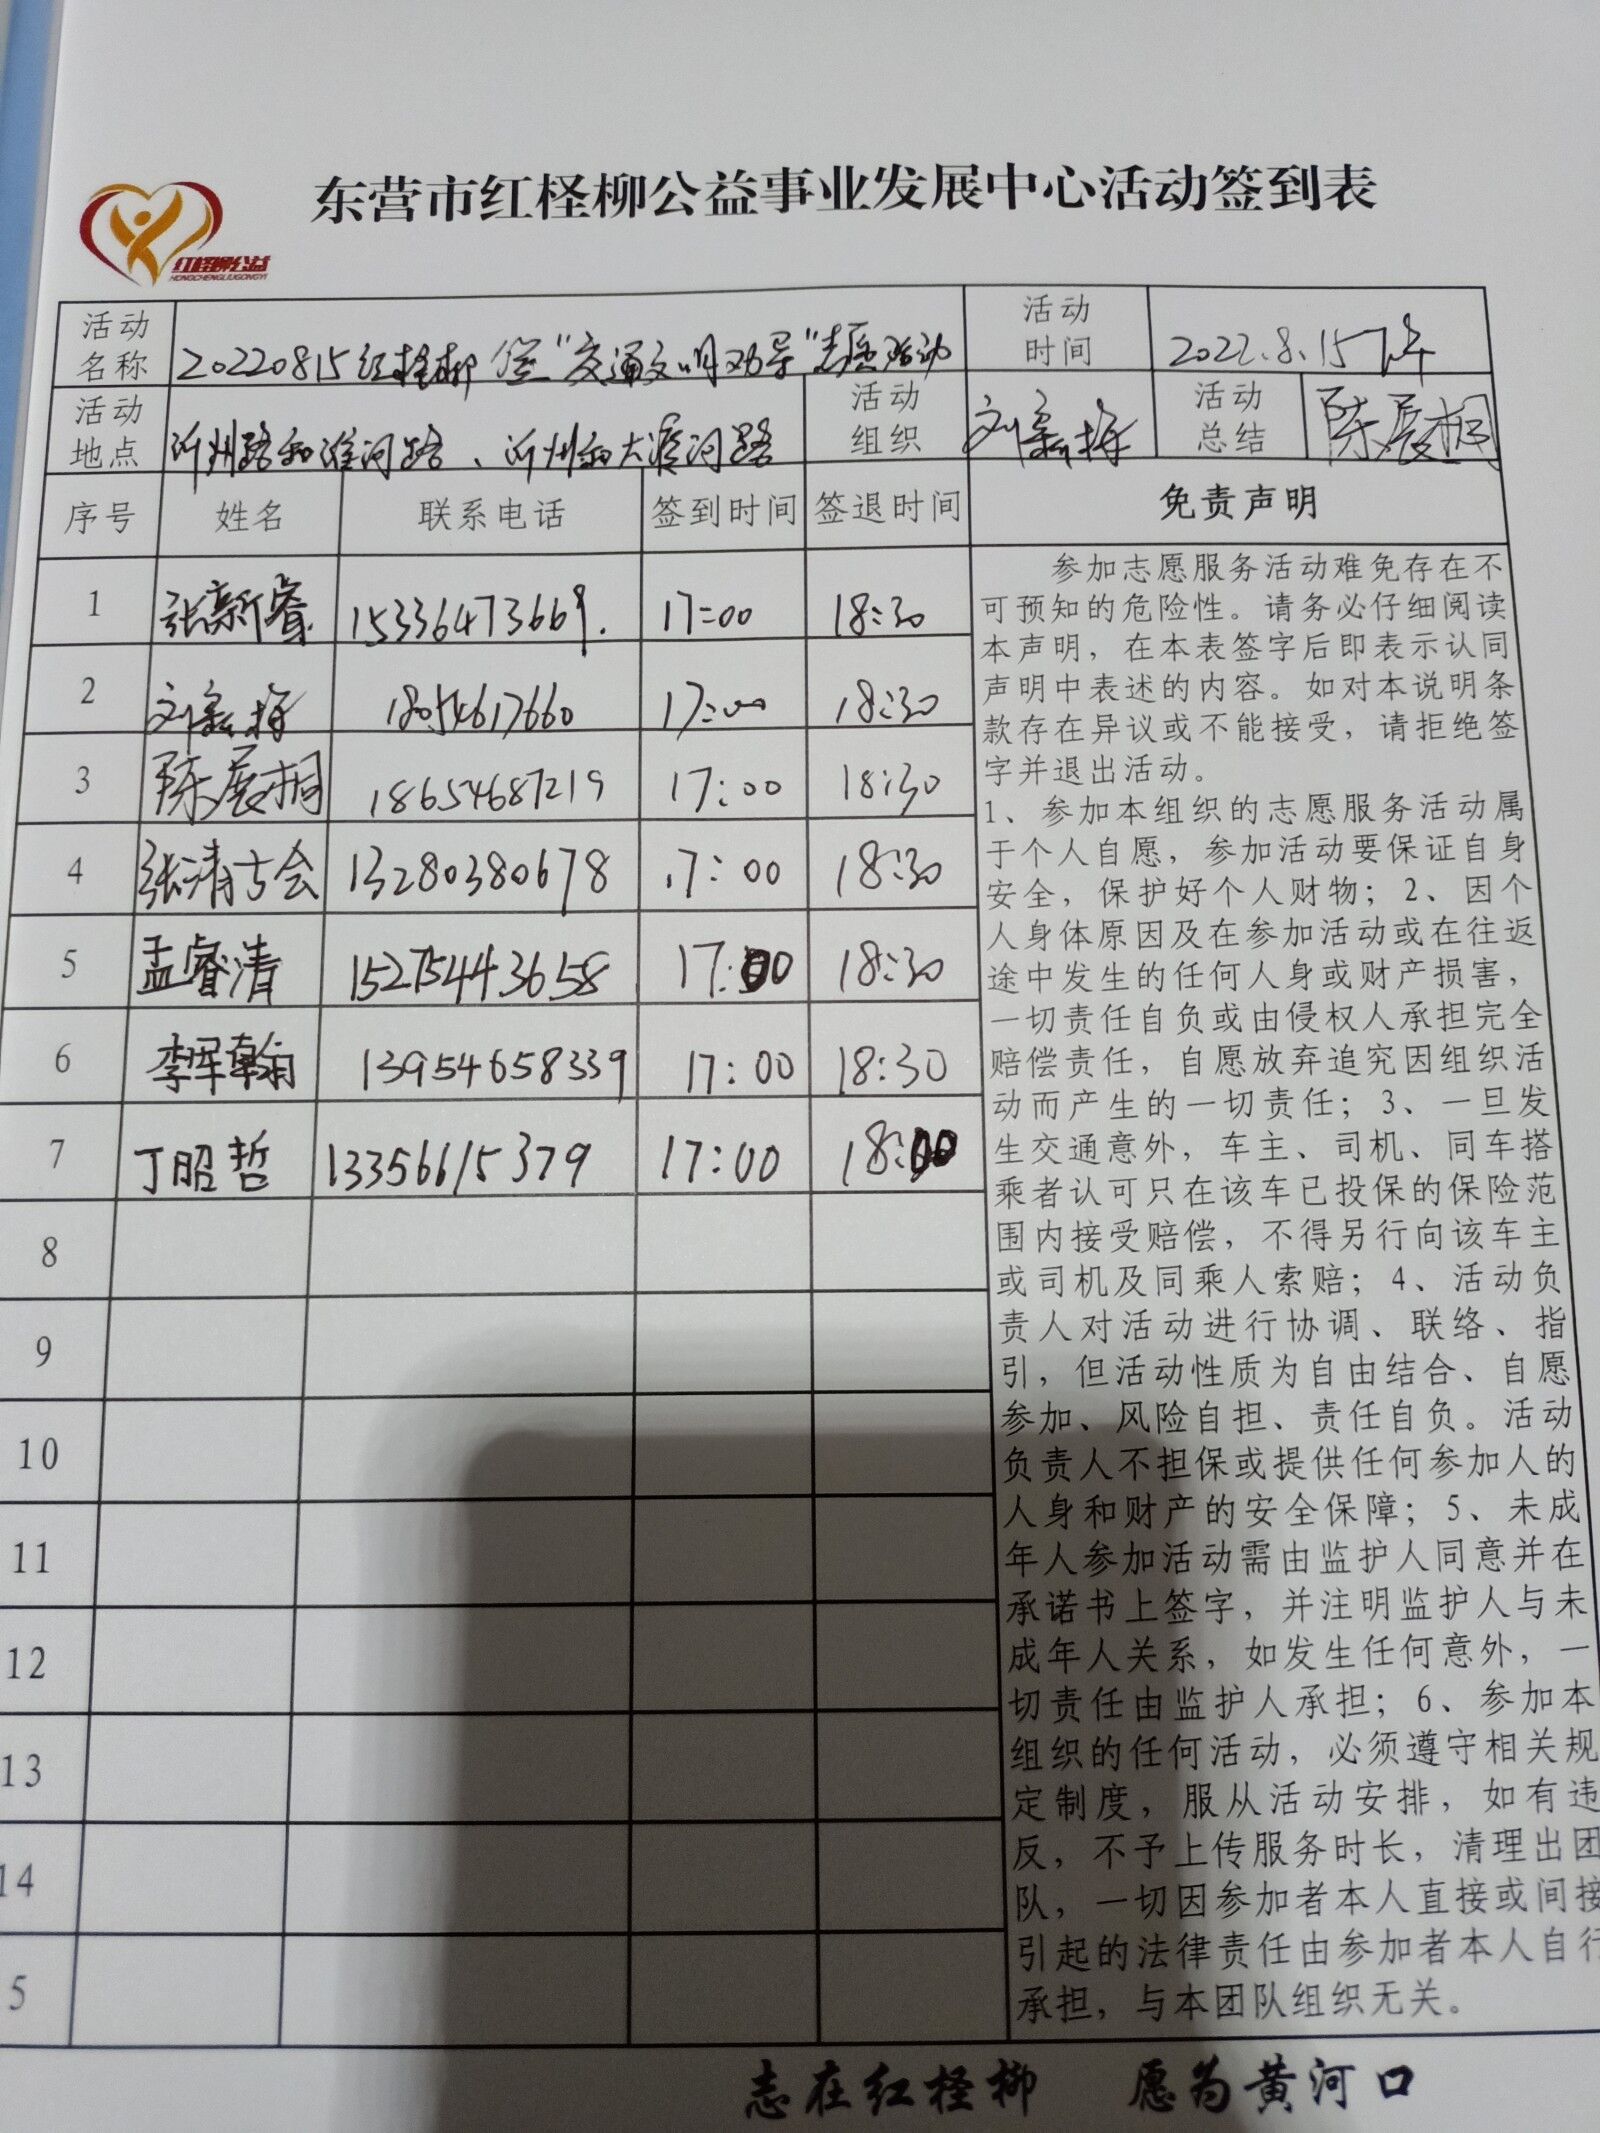 东营市红柽柳公益事业发展中心活动签到表
红柽柳公益
HONGCHENGLIUGONGYI
活动名称 20220815红柽柳 “交通文明劝导”志愿活动 活动时间 2022.8.15下午
活动地点 沂州路和淮河路、沂州和大渡河路 活动组织 刘 活动总结 陈展桐
序号 姓名 联系电话 签到时间 签退时间 免责声明
1 张新睿 15336473669. 17:00 18:30
2 刘 18054617660 17:00 18:30
3 陈展桐 18654687219 17:00 18:30
4 张清 13280380678 17:00 18:30
5 孟睿清 15275443658 17:00 18:30
6 李晖翰 13954658339 17:00 18:30
7 丁昭哲 13356615379 17:00 18:00
8
9
10
11
12
13
14
5
参加志愿服务活动难免存在不
可预知的危险性。请务必仔细阅读
本声明，在本表签字后即表示认同
声明中表述的内容。如对本说明条
款存在异议或不能接受，请拒绝签
字并退出活动。
1、参加本组织的志愿服务活动属
于个人自愿，参加活动要保证自身
安全，保护好个人财物；2、因个
人身体原因及在参加活动或在往返
途中发生的任何人身或财产损害，
一切责任自负或由侵权人承担完全
赔偿责任，自愿放弃追究因组织活
动而产生的一切责任；3、一旦发
生交通意外，车主、司机、同车搭
乘者认可只在该车已投保的保险范
围内接受赔偿，不得另行向该车主
或司机及同乘人索赔；4、活动负
责人对活动进行协调、联络、指
引，但活动性质为自由结合、自愿
参加、风险自担、责任自负。活动
负责人不担保或提供任何参加人的
人身和财产的安全保障；5、未成
年人参加活动需由监护人同意并在
承诺书上签字，并注明监护人与未
成年人关系，如发生任何意外，一
切责任由监护人承担；6、参加本
组织的任何活动，必须遵守相关规
定制度，服从活动安排，如有违
反，不予上传服务时长，清理出团
队，一切因参加者本人直接或间接
引起的法律责任由参加者本人自行
承担，与本团队组织无关。
志在红柽柳 愿为黄河口